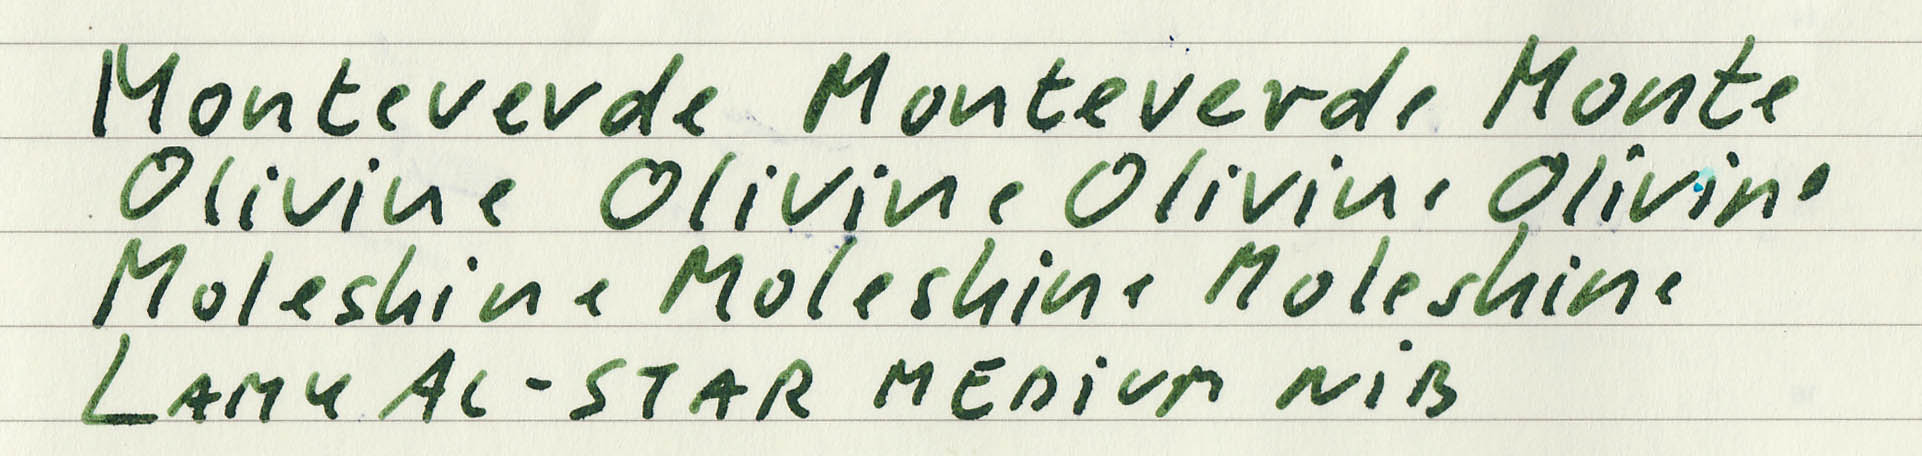 Monteverde Monteverde Monte
Olivine Olivine Olivine Olivine
Moleshine Moleshine Moleshine
LAMY AL-STAR MEDiUM NiB